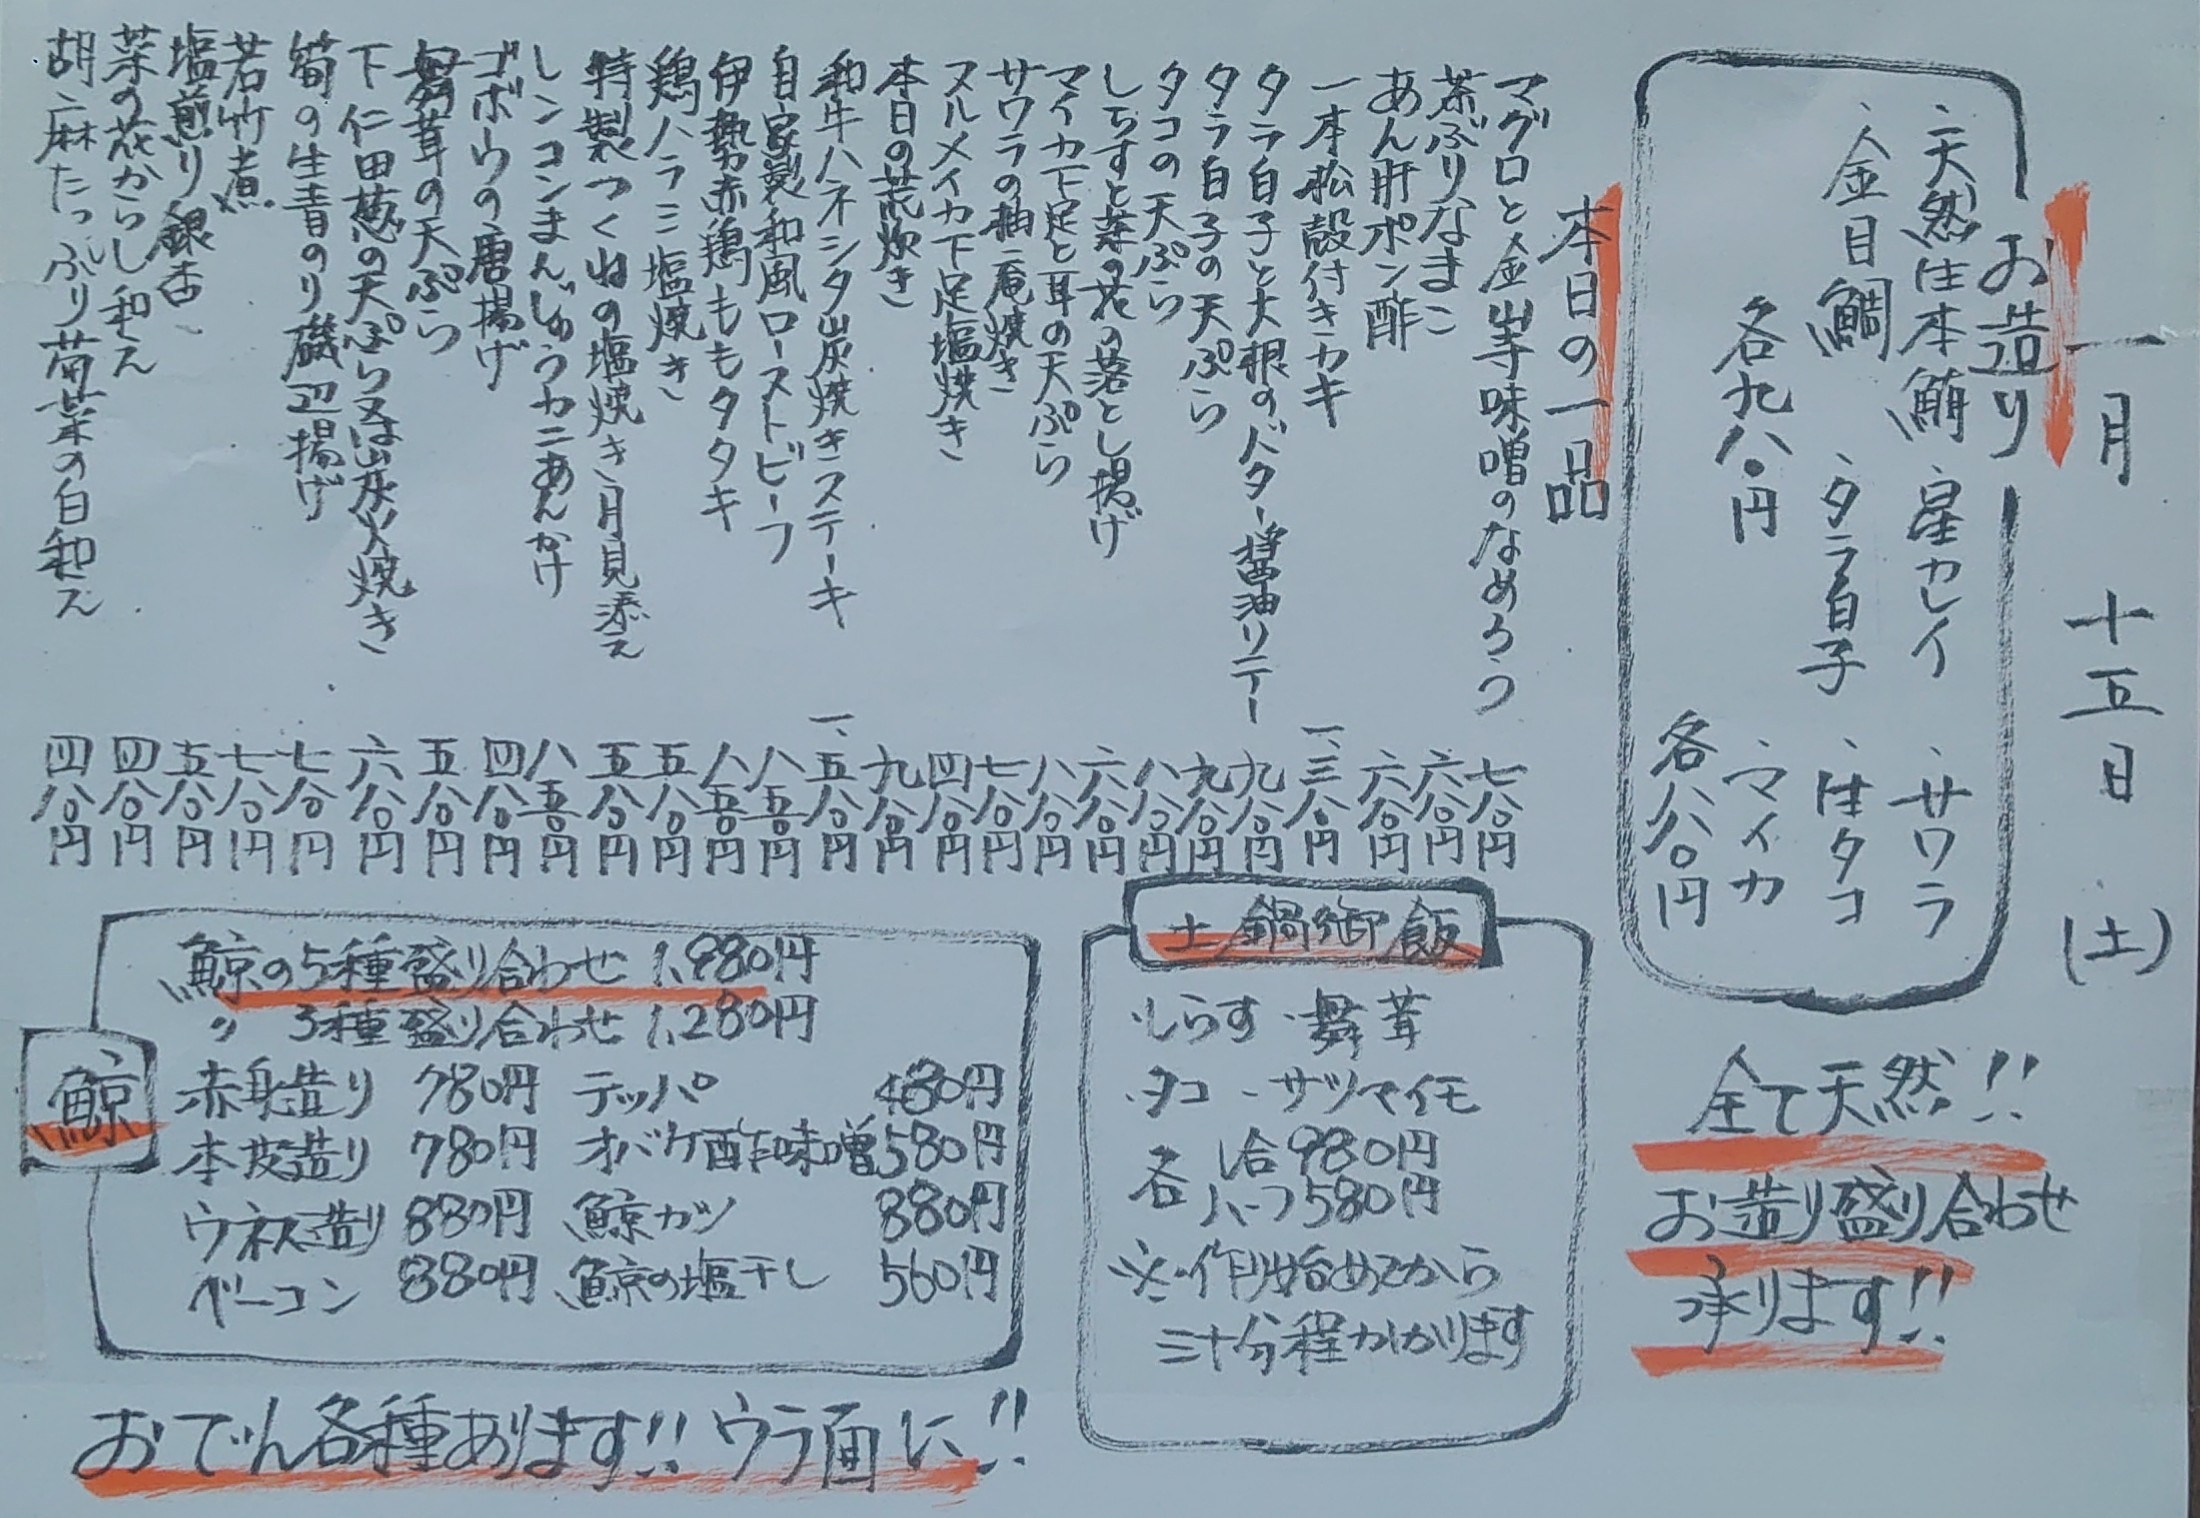 一月 十五日 (土)
お造り
・天然生本鮪 ・星カレイ ・サワラ
・金目鯛 ・タラ白子 ・生タコ
・マイカ
各九八〇円 各八八〇円
本日の一品
マグロと金山寺味噌のなめろう 七八〇円
茶ぶりなまこ 六八〇円
あん肝ポン酢 六八〇円
一本松殻付きカキ 一、三八〇円
タラ白子と大根のバター醤油ソテー 九八〇円
タラ白子の天ぷら 九八〇円
タコの天ぷら 八八〇円
しらすと菜の花の落とし揚げ 六八〇円
マイカ下足と耳の天ぷら 八八〇円
サワラの柚庵焼き 七八〇円
スルメイカ下足塩焼き 四八〇円
本日の荒炊き 九八〇円
和牛ハネシタ炭焼きステーキ 一、五八〇円
自家製和風ローストビーフ 八五〇円
伊勢赤鶏ももタタキ 八五〇円
鶏ハラミ塩焼き 五八〇円
特製つくねの塩焼き、月見添え 五八〇円
レンコンまんじゅうカニあんかけ 八五〇円
ゴボウの唐揚げ 四八〇円
舞茸の天ぷら 五八〇円
下仁田葱の天ぷら又は炭火焼き 六八〇円
筍の生青のり磯辺揚げ 七八〇円
若竹煮 七八〇円
塩煎り銀杏 五八〇円
菜の花からし和え 四八〇円
胡麻たっぷり菊菜の白和え 四八〇円
全て天然!!
お造り盛り合わせ
承ります!!
土鍋御飯
・しらす ・舞茸
・タコ ・サツマイモ
各 1合 980円
ハーフ 580円
※作り始めてから
三十分程かかります
鯨
鯨の5種盛り合わせ 1,980円
〃 3種盛り合わせ 1,280円
赤身造り 780円 テッパ 480円
本皮造り 780円 オバケ酢味噌 580円
ウネス造り 880円 鯨ガツ 880円
ベーコン 880円 鯨の塩干し 560円
おでん各種あります!! ウラ面に!!